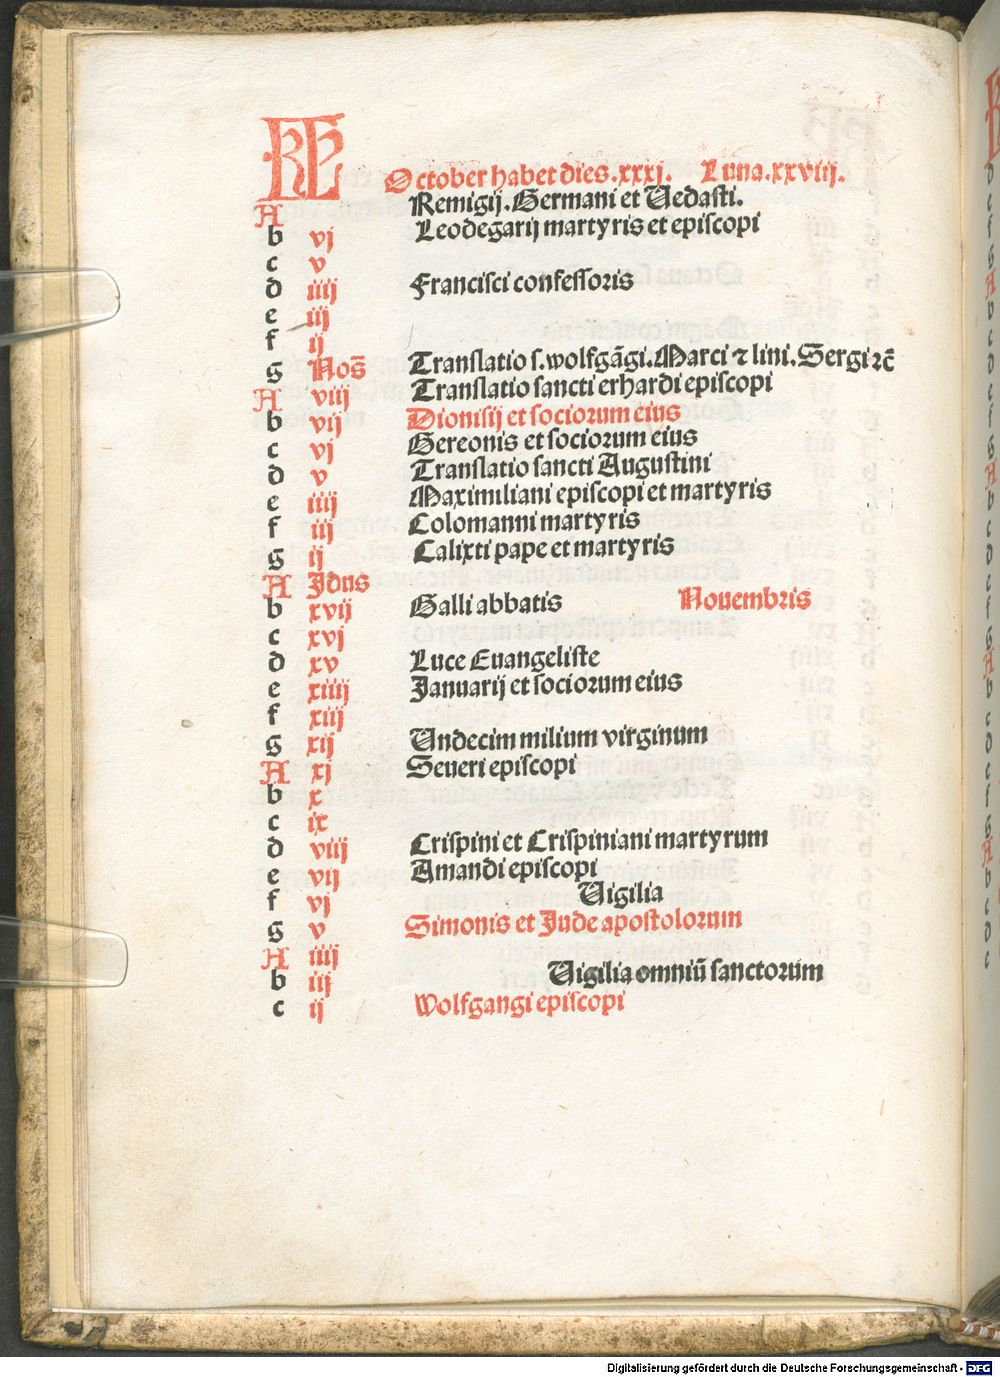 KL October habet dies.xxxj. Luna.xxviij.
A Remigij.Germani et Vedasti.
b vj Leodegarij martyris et episcopi
c v
d iiij Francisci confessoris
e iij
f ij
g Nos̄ Translatio s.wolfgāgi.Marci ⁊ lini.Sergi ⁊c̄
A viij Translatio sancti erhardi episcopi
b vij Dionisij et sociorum eius
c vj Gereonis et sociorum eius
d v Translatio sancti Augustini
e iiij Maximiliani episcopi et martyris
f iij Colomanni martyris
g ij Calixti pape et martyris
A Jdus
b xvij Galli abbatis Nouembris
c xvj
d xv Luce Euangeliste
e xiiij Januarij et sociorum eius
f xiij
g xij Undecim milium virginum
A xj Seueri episcopi
b x
c ix
d viij Crispini et Crispiniani martyrum
e vij Amandi episcopi
f vj Vigilia
g v Simonis et Jude apostolorum
A iiij
b iij Vigilia omniū sanctorum
c ij Wolfgangi episcopi
Digitalisierung gefördert durch die Deutsche Forschungsgemeinschaft - DFG